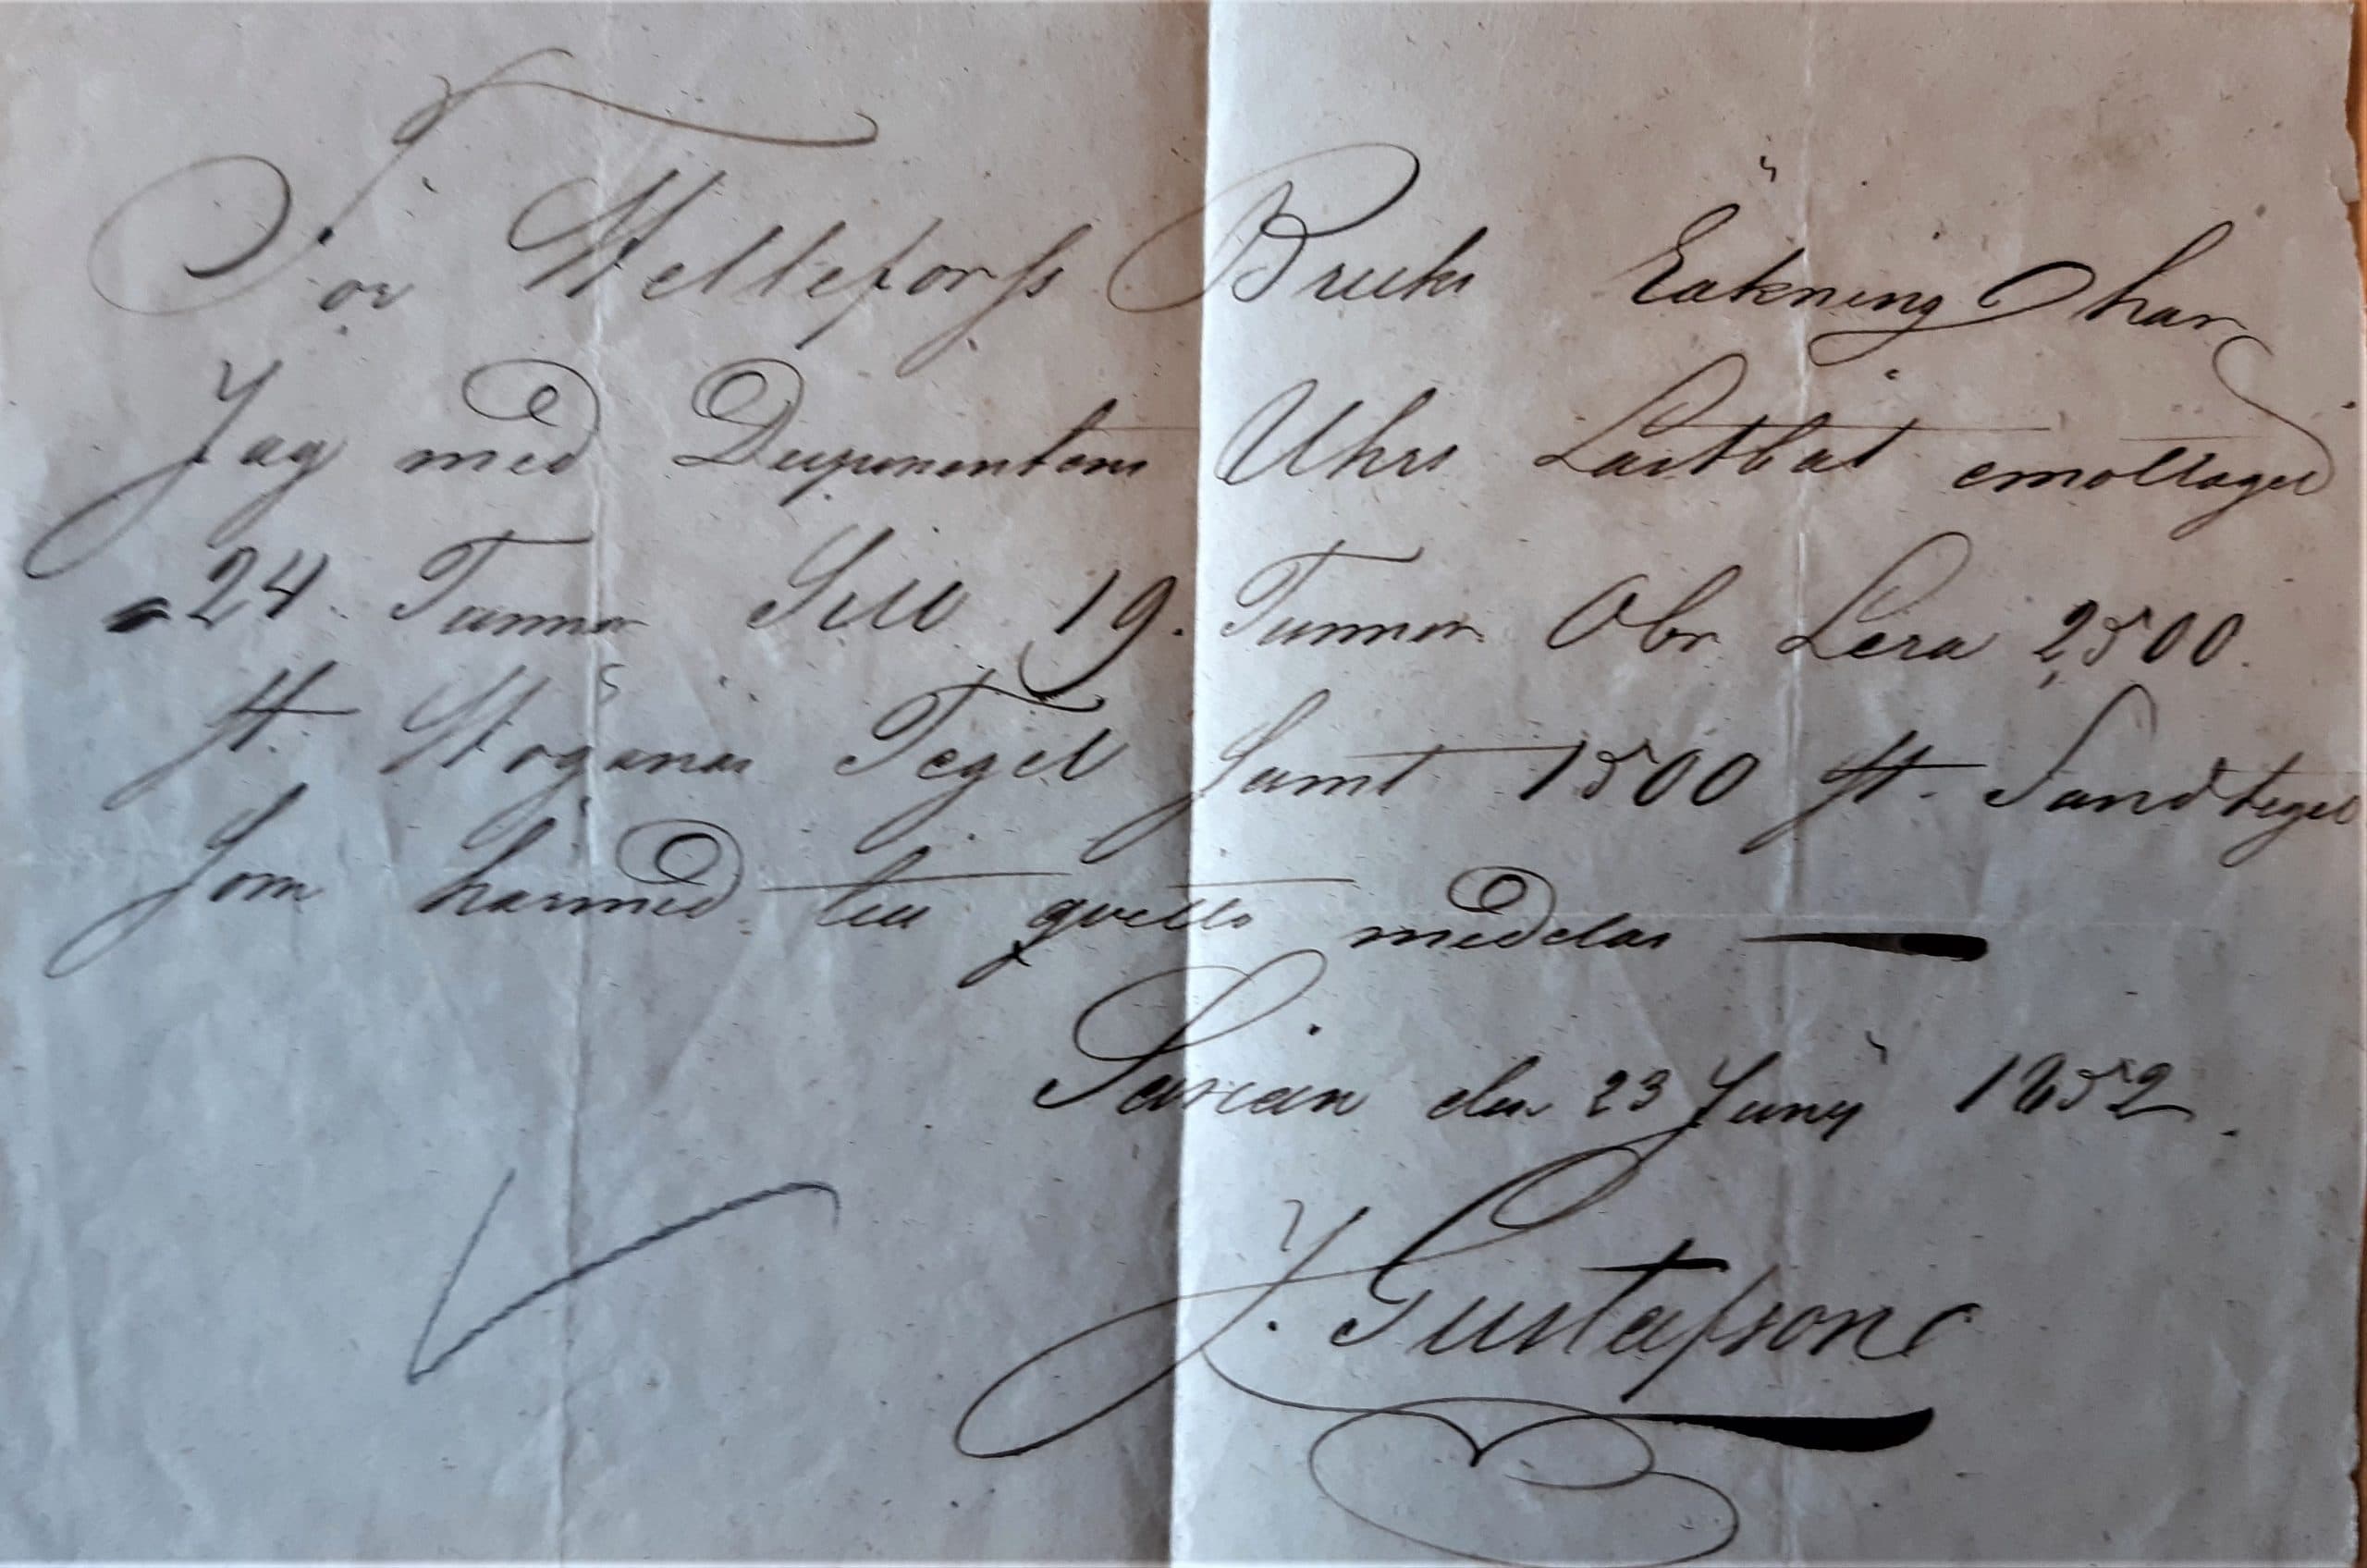 För Helleforss Bruks Räkning har
Jag med Disponentens Uhrs Lastbåt emottaget
24 Tunnor Sill 19. Tunnor Obr Lera 2500.
st. Höganäs Tegel samt 1500 st. Sandtegel
som härmed till qvitto medelas
Saxån den 23 Junÿ 1852.
J. Gustafson